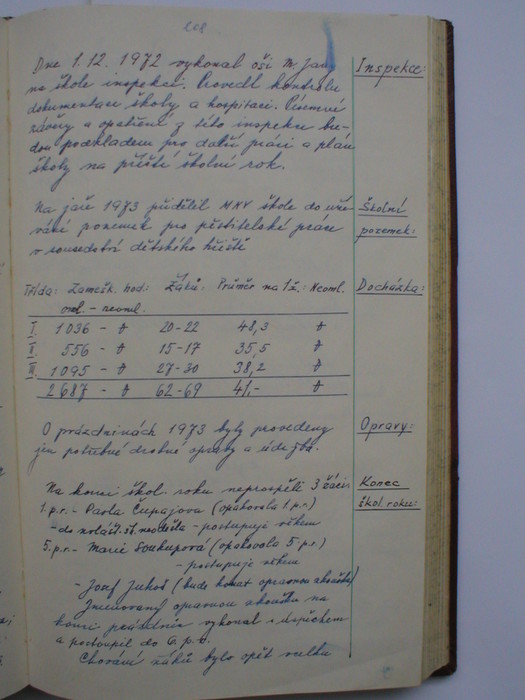 208
Dne 1.12. 1972 vykonal oši M. Jany
Inspekce:
na škole inspekci. Provedl kontrolu
dokumentace školy a hospitaci. Písemné
závěry a opatření z této inspekce bu-
dou podkladem pro další práci a plán
školy na příští školní rok.
Na jaře 1973 přidělil MNV škole do uží
Školní
vání pozemek pro pěstitelské práce
pozemek:
v sousedství dětského hřiště
Třída: Zamešk. hod: Žáků: Průměr na 1 ž.: Neoml.
Docházka:
oml. - neoml.
I. 1 036 - 0 20-22 48,3 0
II. 556 - 0 15-17 35,5 0
III. 1 095 - 0 27-30 38,2 0
2 687 - 0 62-69 41,- 0
O prázdninách 1973 byly provedeny
Opravy:
jen potřebné drobné opravy a údržba.
Na konci škol. roku neprospěli 3 žáci:
Konec
1. p.r. - Pavla Čupajova (opakovala 1 p.r.)
škol. roku:
- do zvlášt. šk. nedošla - postupuje věkem
5. p.r. - Marie Soukupová (opakovala 5 p.r.)
- postupuje věkem
- Josef Juhoš (bude konat opravnou zkoušku)
Jmenovaný opravnou zkoušku na
konci prázdnin vykonal s úspěchem
a postoupil do 6. p.r.
Chování žáků bylo opět velka